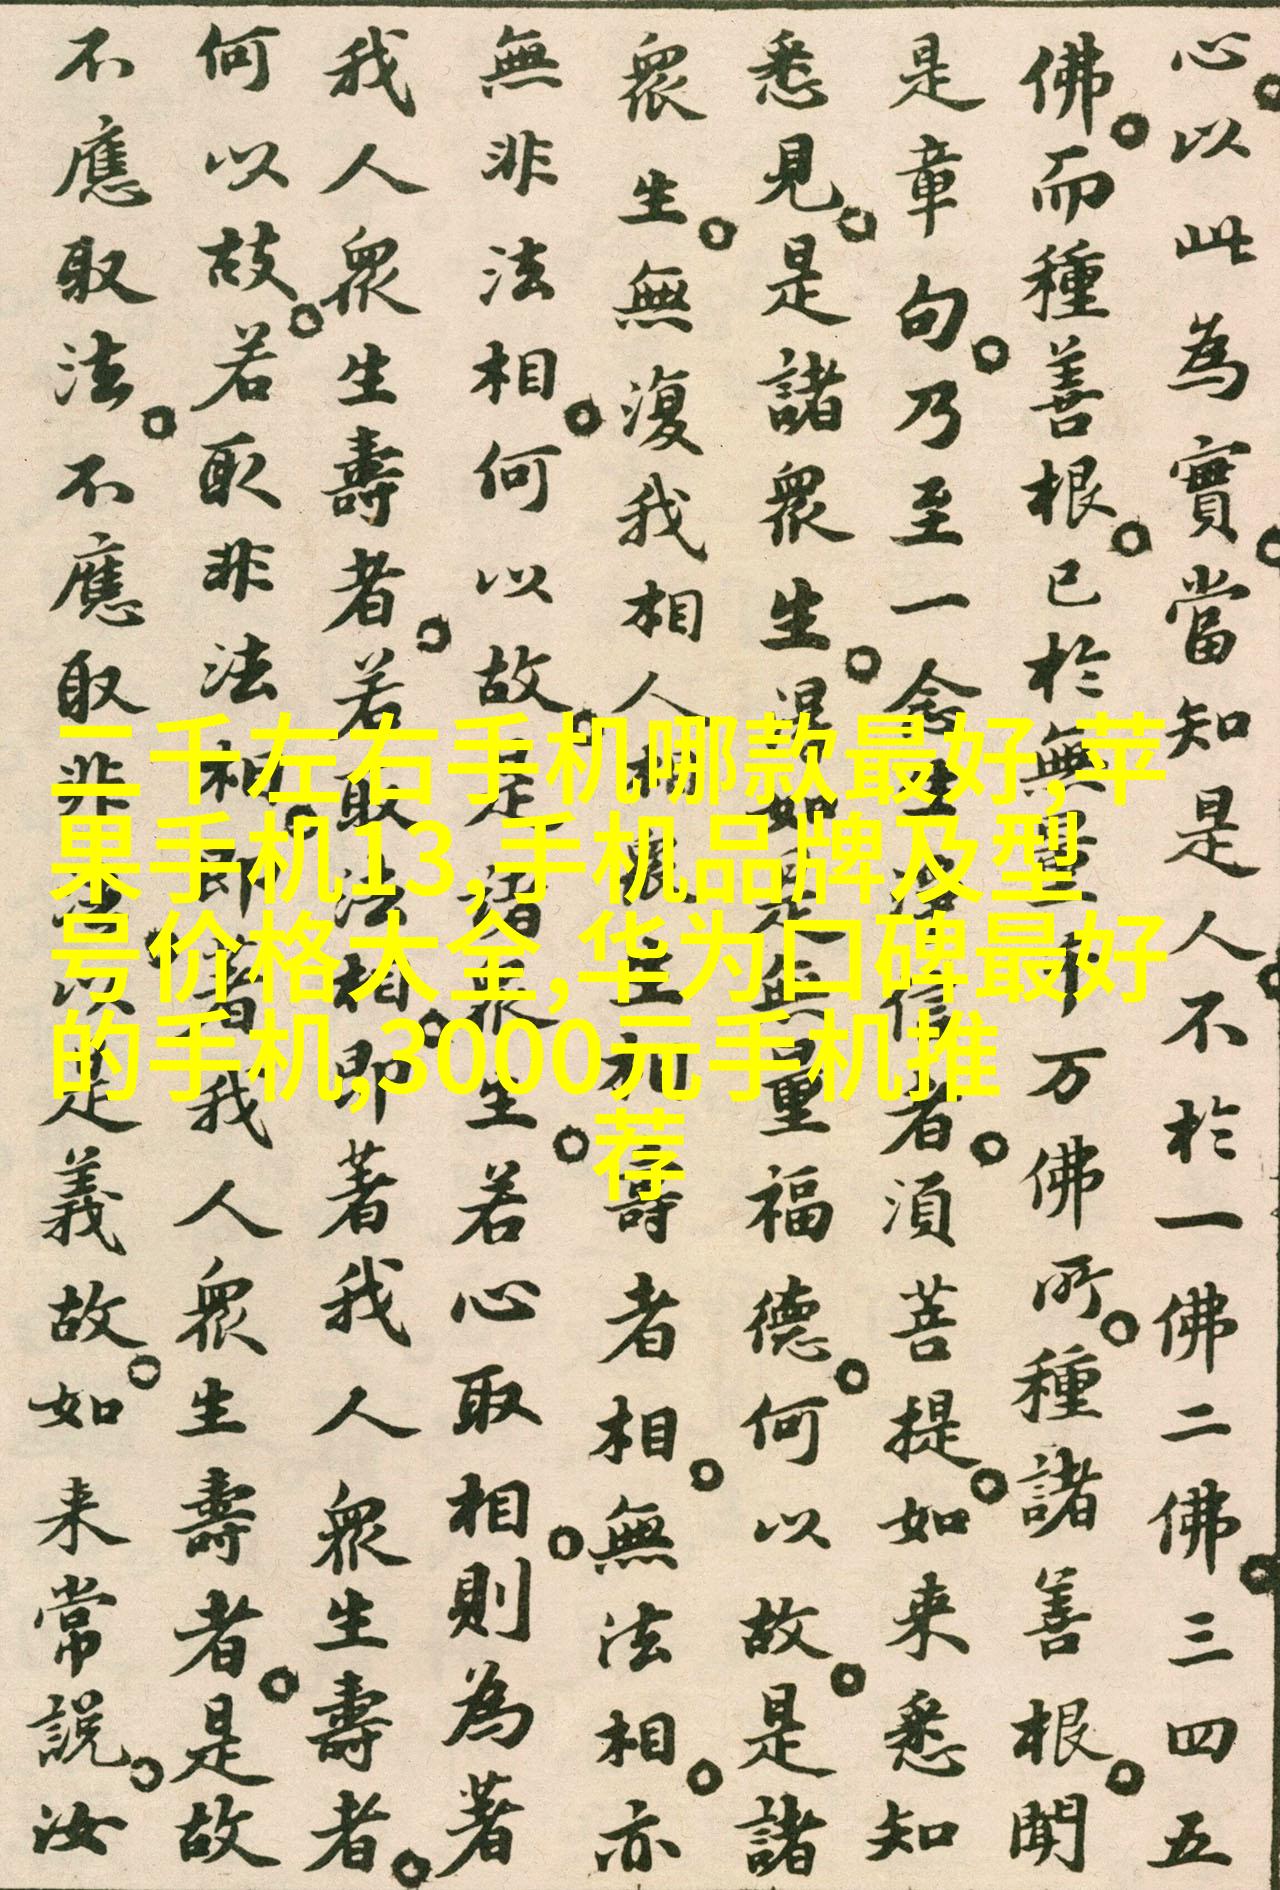 心。以此為實。當知是人。不於一佛二佛。三四五
佛。而種善根。已於無量千万佛所。種諸善根。聞
是章句。乃至一念生淨信者。須菩提。如来悉知
悉見。是諸衆生。得如是無量福德。何以故。是諸
衆生。無復我相人相衆生相壽者相。無法相。亦
無非法相。何以故。是諸衆生若心取相。則為著
我人衆生壽者。若取法相。即著我人衆生壽者。
何以故。若取非法相。即著我人衆生壽者。是故
不應取法。不應取非法。以是義故。如来常說。汝
二千左右手机哪款最好,苹
果手机13,手机品牌及型
号价格大全,华为口碑最好
的手机,3000元手机推
荐